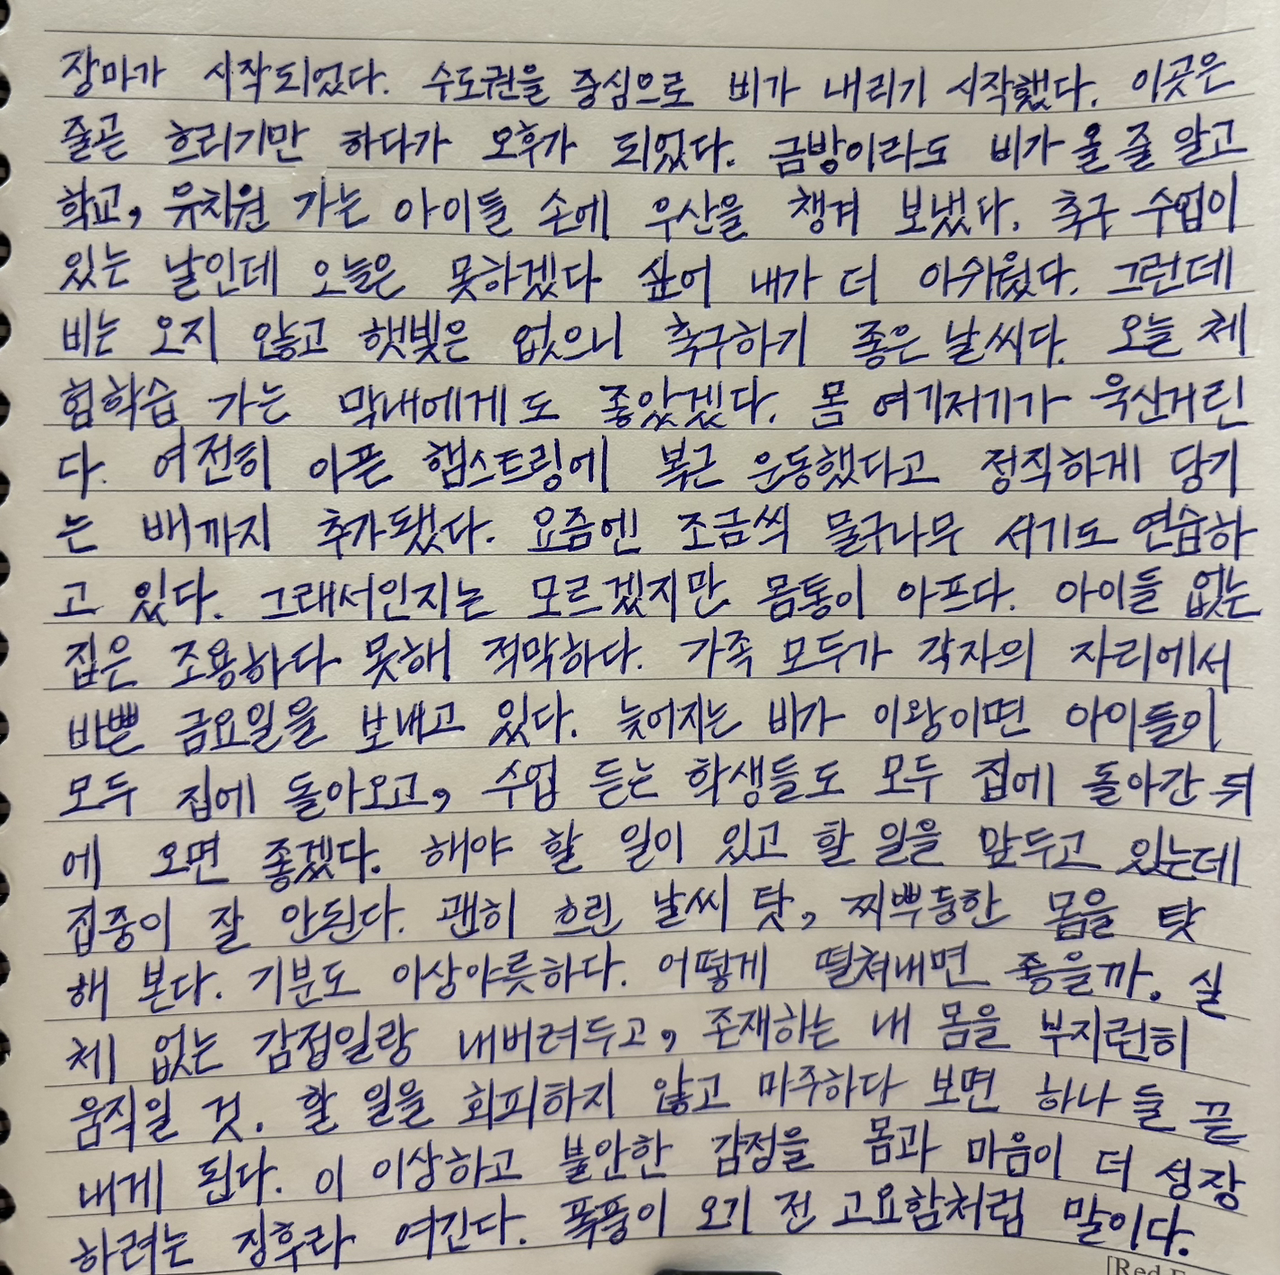 장마가 시작되었다. 수도권을 중심으로 비가 내리기 시작했다. 이곳은
줄곧 흐리기만 하다가 오후가 되었다. 금방이라도 비가 올 줄 알고
학교, 유치원 가는 아이들 손에 우산을 챙겨 보냈다. 축구 수업이
있는 날인데 오늘은 못하겠다 싶어 내가 더 아쉬웠다. 그런데
비는 오지 않고 햇빛은 없으니 축구하기 좋은 날씨다. 오늘 체
험학습 가는 막내에게도 좋았겠다. 몸 여기저기가 욱신거린
다. 여전히 아픈 햄스트링에 복근 운동했다고 정직하게 당기
는 배까지 추가됐다. 요즘엔 조금씩 물구나무 서기도 연습하
고 있다. 그래서인지는 모르겠지만 몸통이 아프다. 아이들 없는
집은 조용하다 못해 적막하다. 가족 모두가 각자의 자리에서
바쁜 금요일을 보내고 있다. 늦어지는 비가 이왕이면 아이들이
모두 집에 돌아오고, 수업 듣는 학생들도 모두 집에 돌아간 뒤
에 오면 좋겠다. 해야 할 일이 있고 할 일을 앞두고 있는데
집중이 잘 안된다. 괜히 흐린 날씨 탓, 찌뿌둥한 몸을 탓
해 본다. 기분도 이상야릇하다. 어떻게 떨쳐내면 좋을까. 실
체 없는 감정일랑 내버려두고, 존재하는 내 몸을 부지런히
움직일 것. 할 일을 회피하지 않고 마주하다 보면 하나 둘 끝
내게 된다. 이 이상하고 불안한 감정을 몸과 마음이 더 성장
하려는 징후라 여긴다. 폭풍이 오기 전 고요함처럼 말이다.
[Red